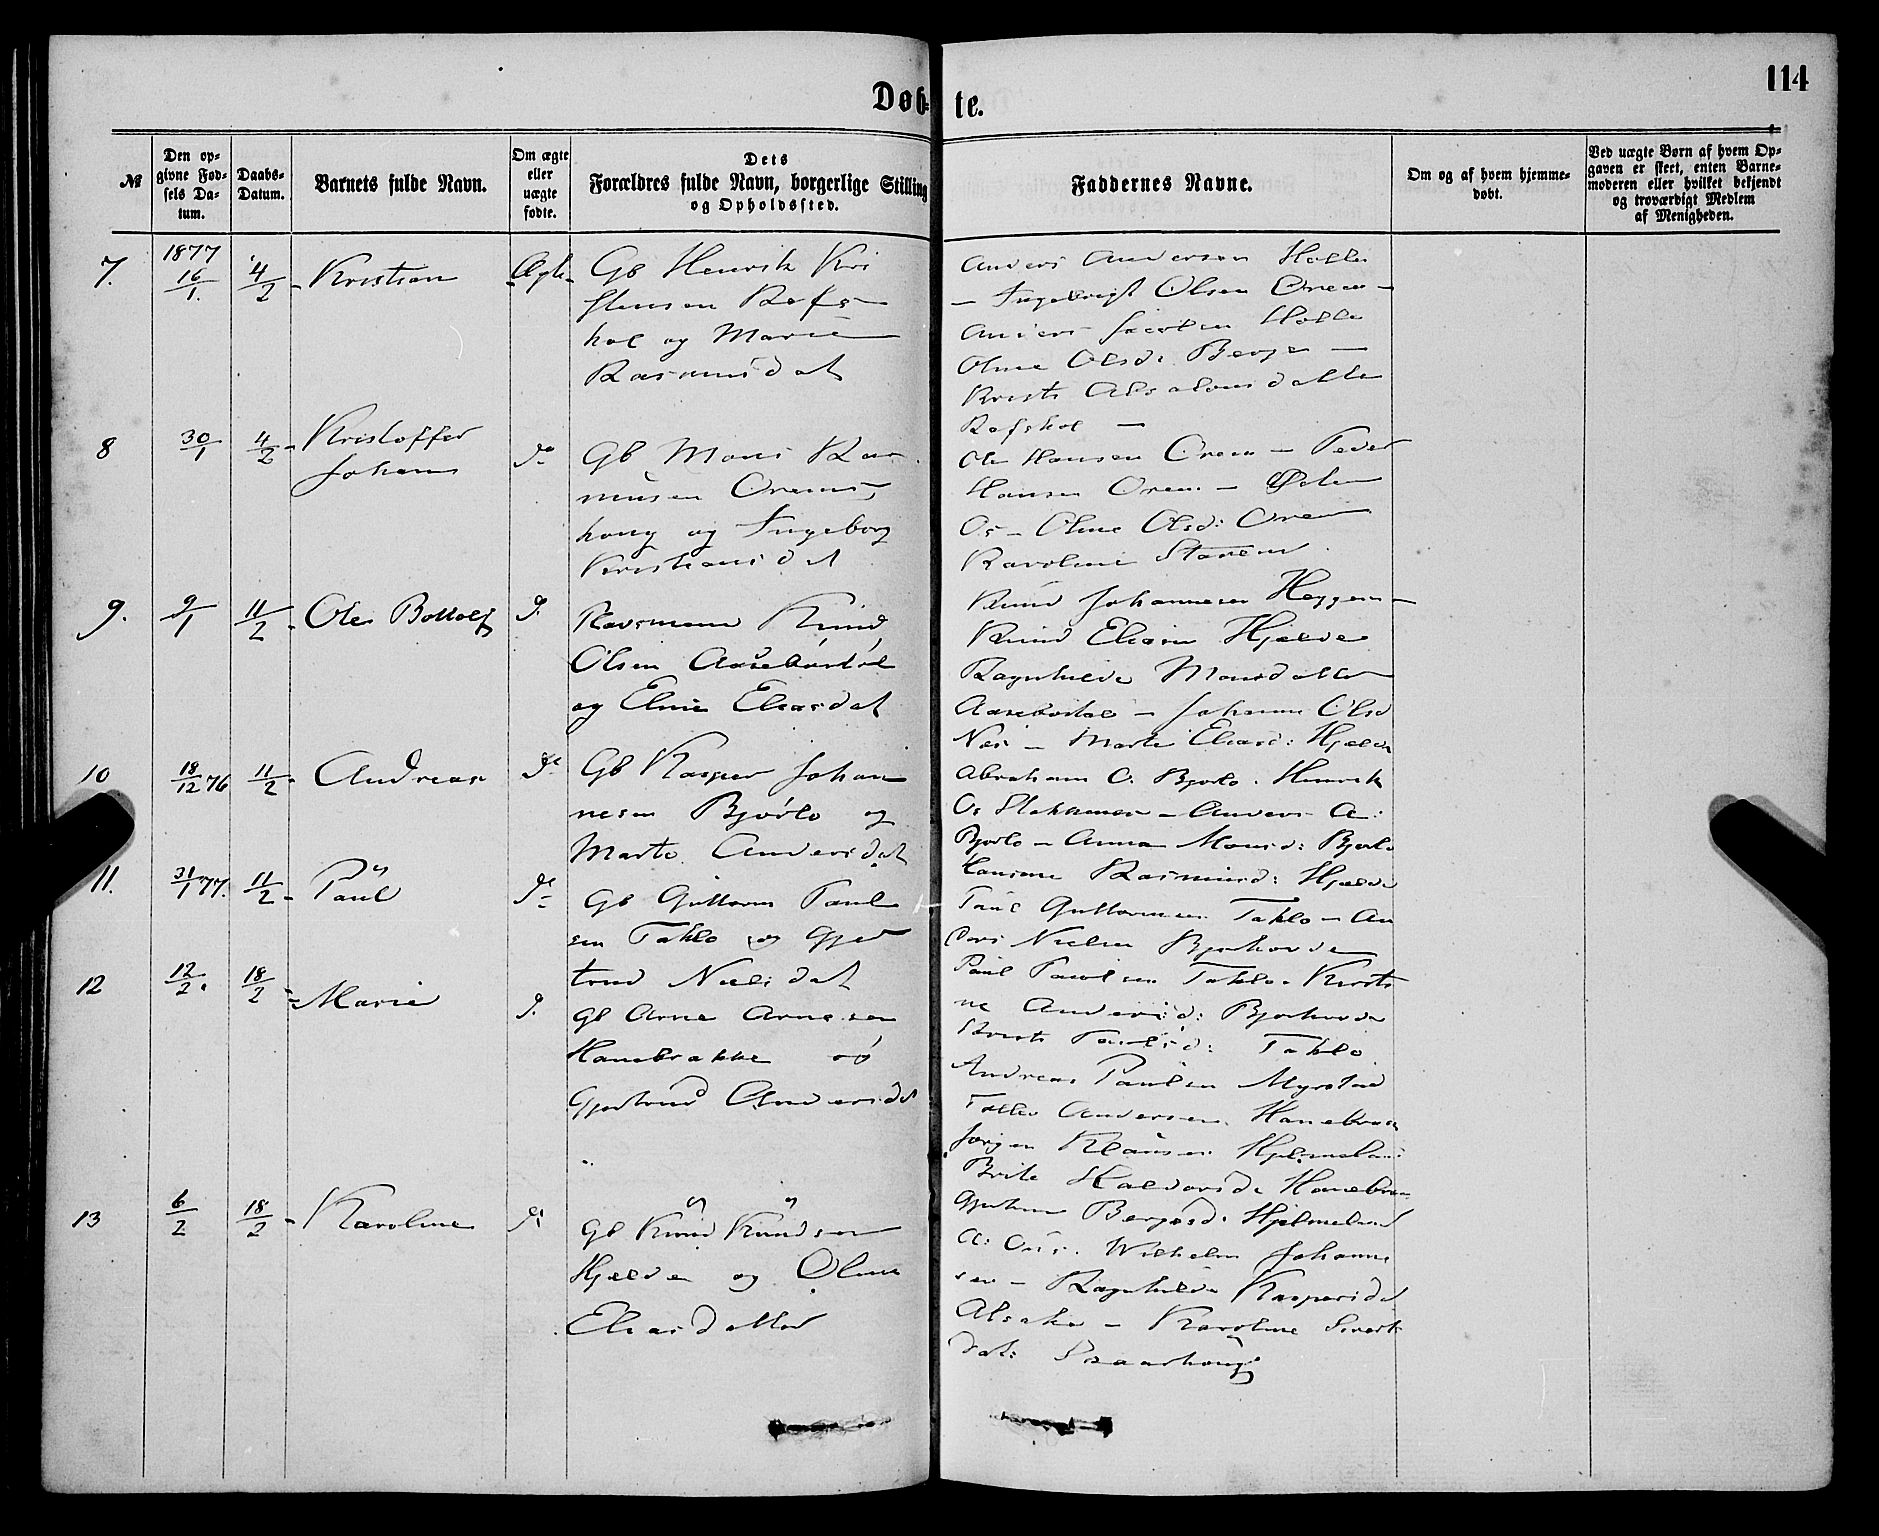 114
Døb-te.
№
Den op-
givne Fød-
sels Da-
tum.
Daabs-
Datum.
Barnets fulde Navn.
Om ægte
eller
uægte
fødte.
Dets
Forældres fulde Navn, borgerlige Stilling
og Opholdssted.
Faddernes Navne.
Om og af hvem hjemme-
døbt.
Ved uægte Børn af hvem Op-
gaven er skeet, enten Barne-
moderen eller hvilket bekjendt
og troværdigt Medlem
af Menigheden.
7.
1877
16/1.
4/2
Kristian
Gb Henrik Kri
stensen Refs
hol og Marie
Rasmusdat
Anders Andersen Holle
Ingebrigt Olsen Orem
Anders Jacobsen Holle
Oline Olsd: Berge
Kristi Absalonsdatter
Refshol
8
30/1
4/2
Kristoffer
Johann
do
Gb Mons Ras
musen Orems
houg og Ingeborg
Kristiansdat
Ole Hansen Orem - Peder
Hansen Orem -
Os - Oline Olsd: Orem
Karoline
9.
9/1
11/2
Ole Bottolf
d.
Knud
Olsen Aasebøstøl
og Eline Eliasdat
Knud Johannesen Heggem
Knud Eliasen Hjelde
Ragnhilde Monsdatter
Aasebøstøl - Johanne Olsd
Nes - Marte Eliasd: Hjelde
10
18/12 76
11/2
Andreas
do
Gb Kasper Johan
nesen Bjørlo og
Marte Andersdat
Abraham O. Bjørlo. Henrik
Os - Anders A:
Bjørlo - Anna Monsd: Bjørlo
Rasmusd: Hjelde
11.
31/1 77.
11/2
Paul
do
Gb Guttorm Paul
sen Taklo og Gjer
trud Nielsdat
Paul Guttormsen Taklo - An
ders Nielsen
Paul Paulsen Taklo - Kirsti
ne Andersd:
Kristi Paulsd: Taklo
12
12/2.
18/2
Marie
d.
Gb Arne Arnesen
Hanebrække og
Gjertrud Andersdt
Andreas Paulsen Myrstad
Andersen Hanebræk
Jørgen Klausen Hjelmeland
Brite Hanebræ
Bergesd: Hjelmeland
13
6/2
18/2
Karoline
do
Gb Knud Knudsen
Hjelde og Oline
Eliasdatter
A: Os. Wilhelm Johanne
sen - Ragnhilde Kaspersdat
Alsaker - Karoline Sivert
dat: Skaarhaug